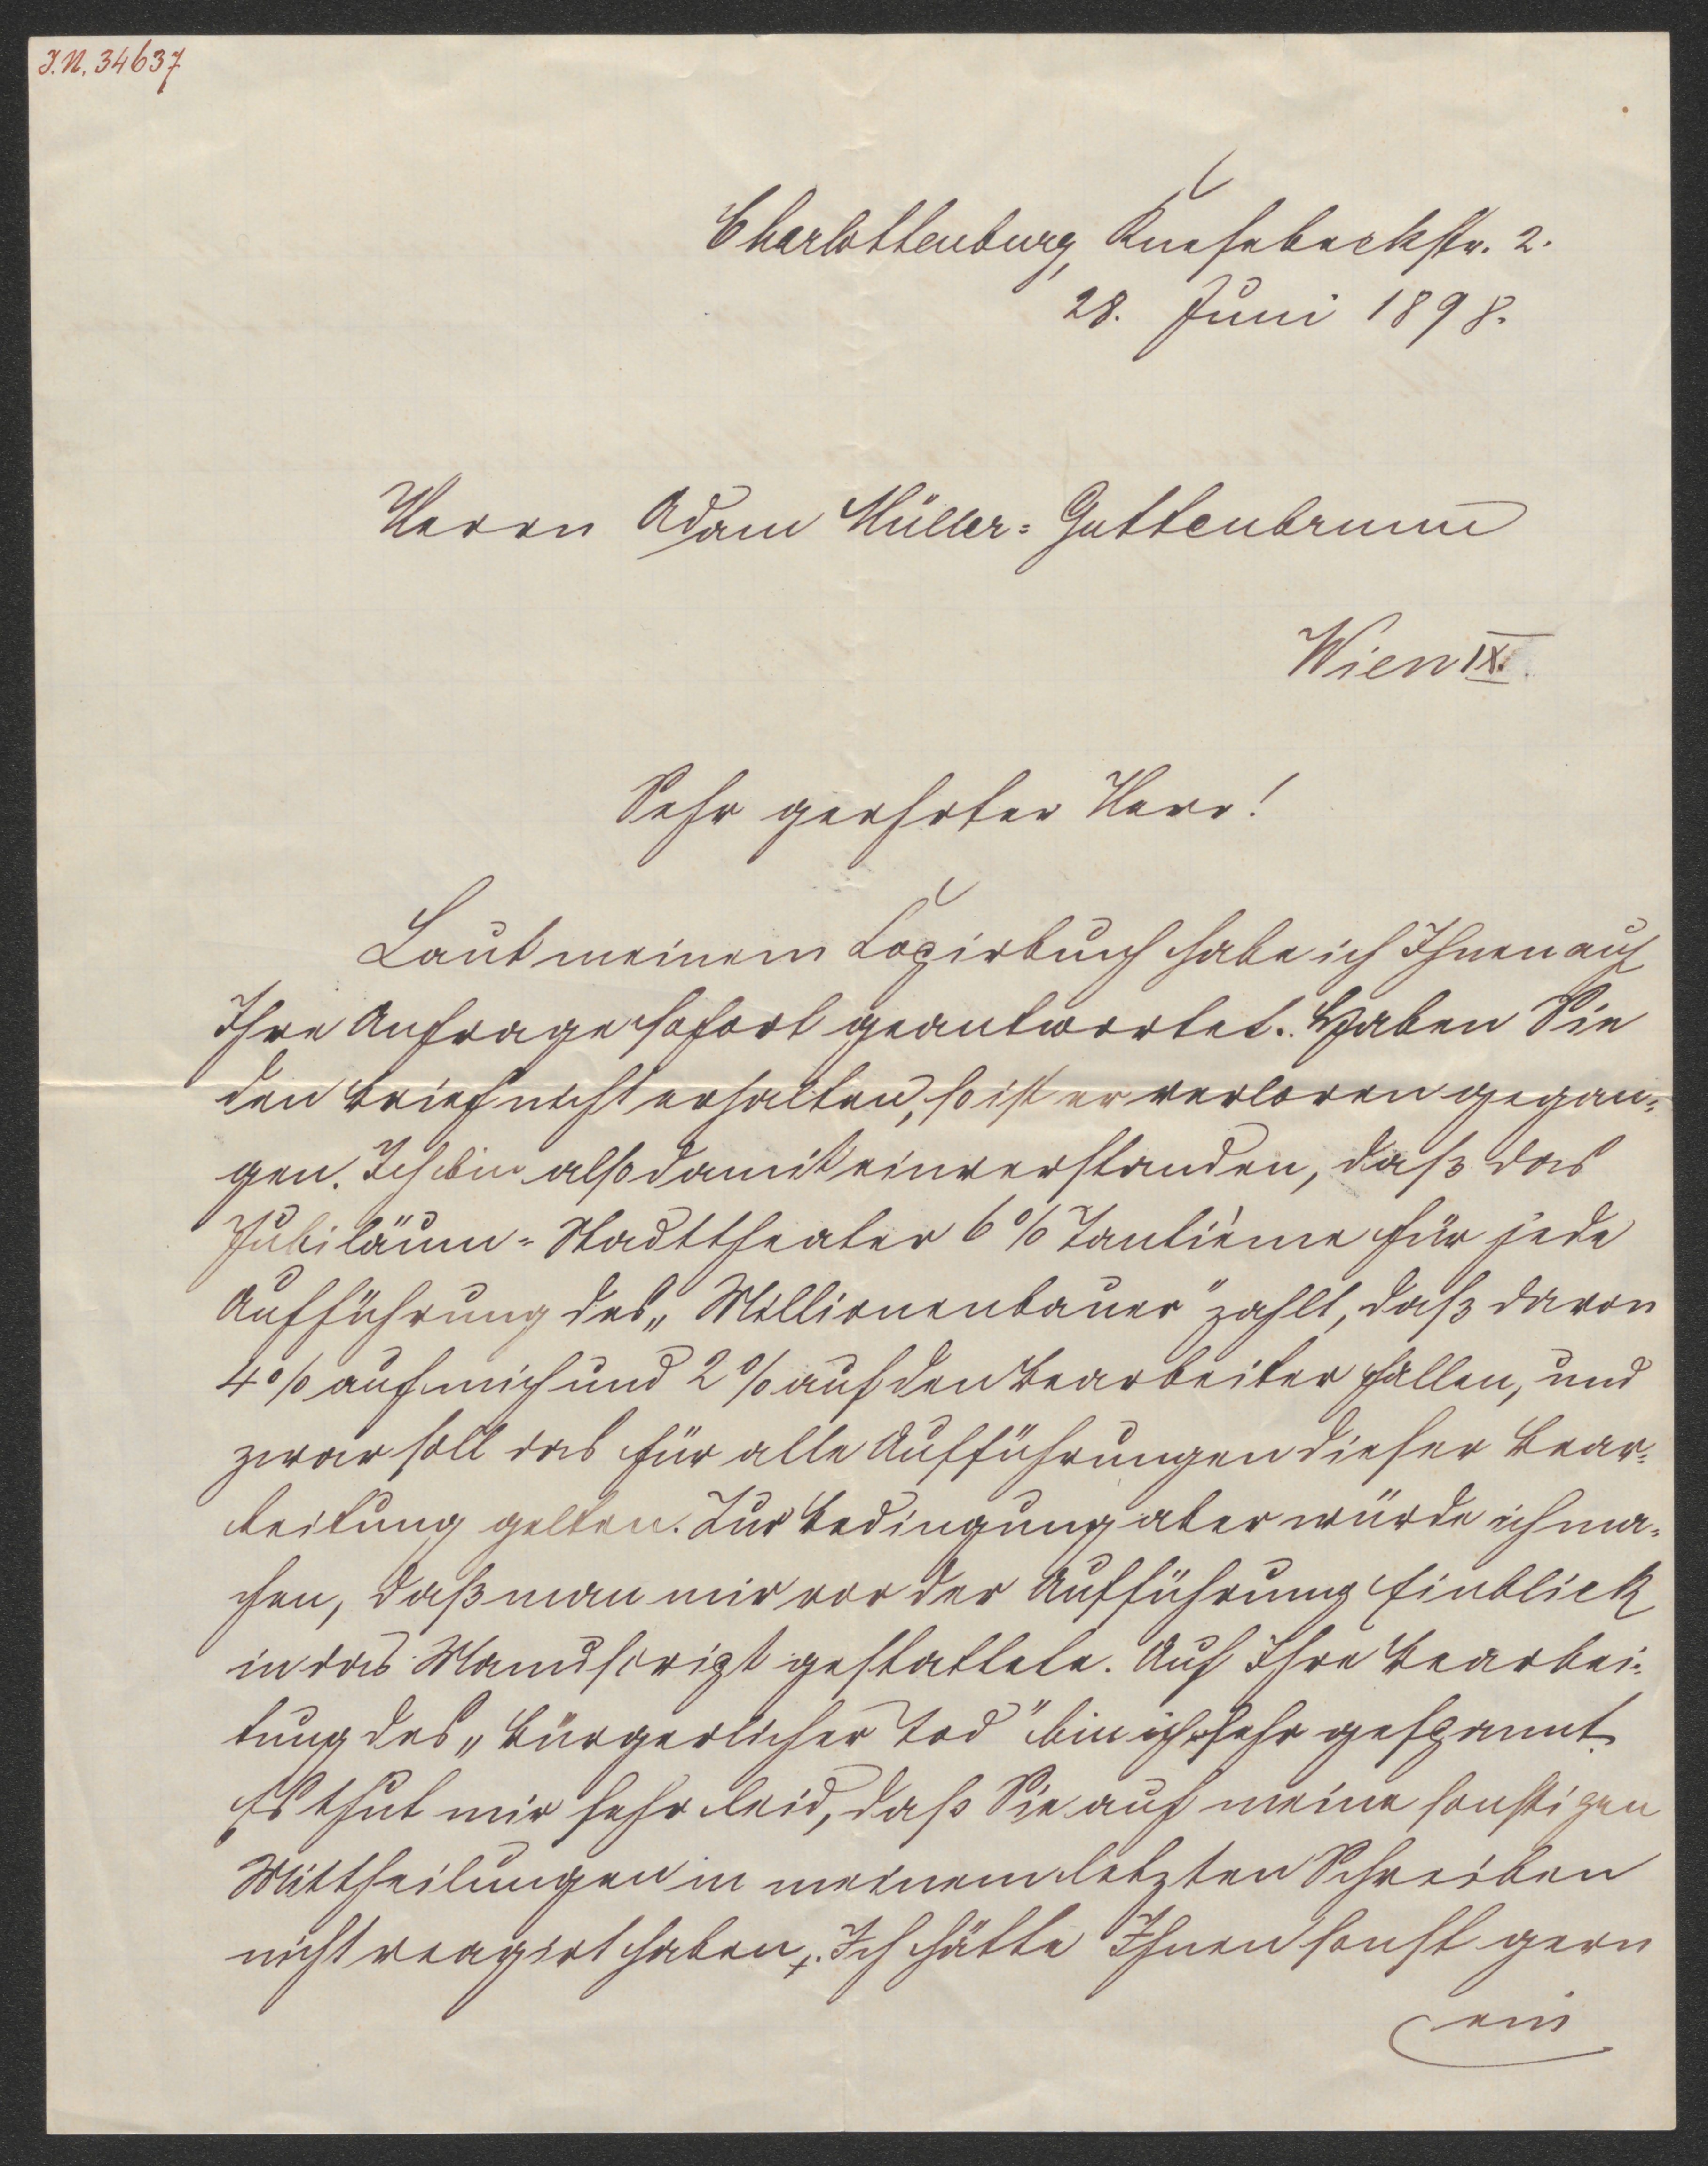 J.N. 34637
Charlottenburg, Knesebeckstr. 2.
28. Juni 1898.
Herrn Adam Müller-Guttenbrunn
Wien IX.
Sehr geehrter Herr!
Laut meinem Copirbuch habe ich Ihnen auf
Ihre Anfrage sofort geantwortet. Haben Sie
den Brief nicht erhalten, so ist er verloren gegan-
gen. Ich bin also damit einverstanden, daß das
Jubiläum-Stadttheater 6% Tantième für jede
Aufführung des „Millionenbauer" zahlt, daß davon
4% auf mich und 2% auf den Bearbeiter fallen, und
zwar soll das für alle Aufführungen dieser Bear-
beitung gelten. Zur Bedingung aber würde ich ma-
chen, daß man mir vor der Aufführung Einblick
in das Manuscript gestattete. Auf Ihre Bearbei-
tung des „Bürgerlicher Tod" bin ich sehr gespannt.
Es thut mir sehr leid, daß Sie auf meine sonstigen
Mittheilungen in meinem letzten Schreiben
nicht reagirt haben. Ich hätte Ihnen sonst gern
ein